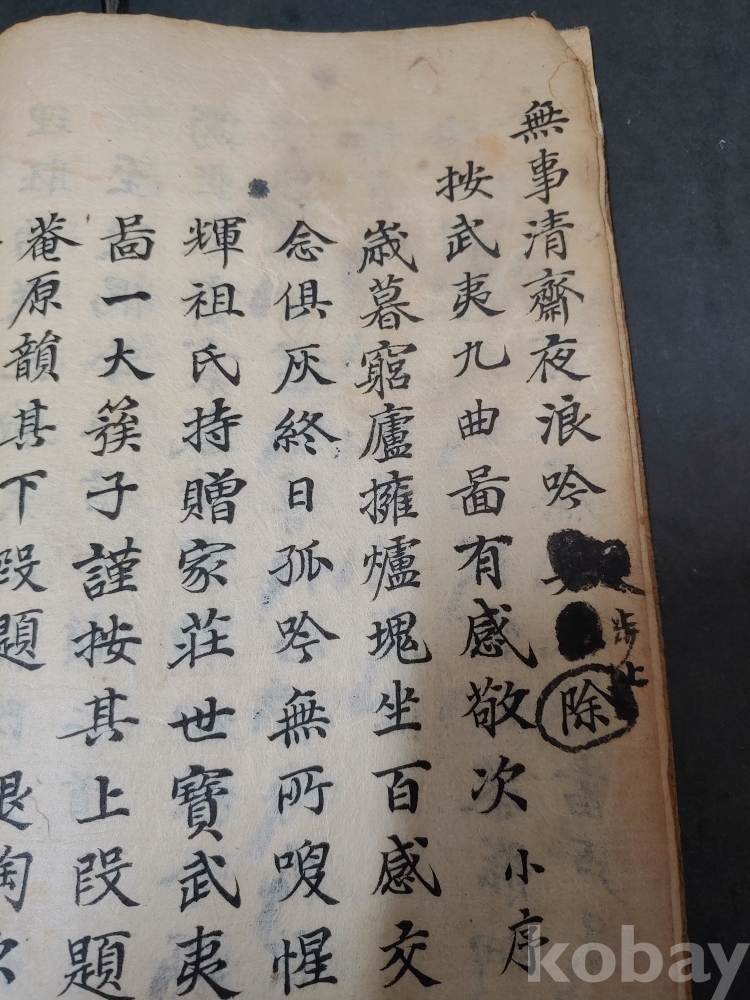 無事清齋夜浪吟
除
按武夷九曲啚有感敬次 小序
歲暮窮廬擁爐塊坐百感交
念俱灰終日孤吟無所嗖惺
輝祖氏持贈家荘世寶武夷
啚一大簇子謹按其上段題
菴原韻其下段題 退陶次
kobay